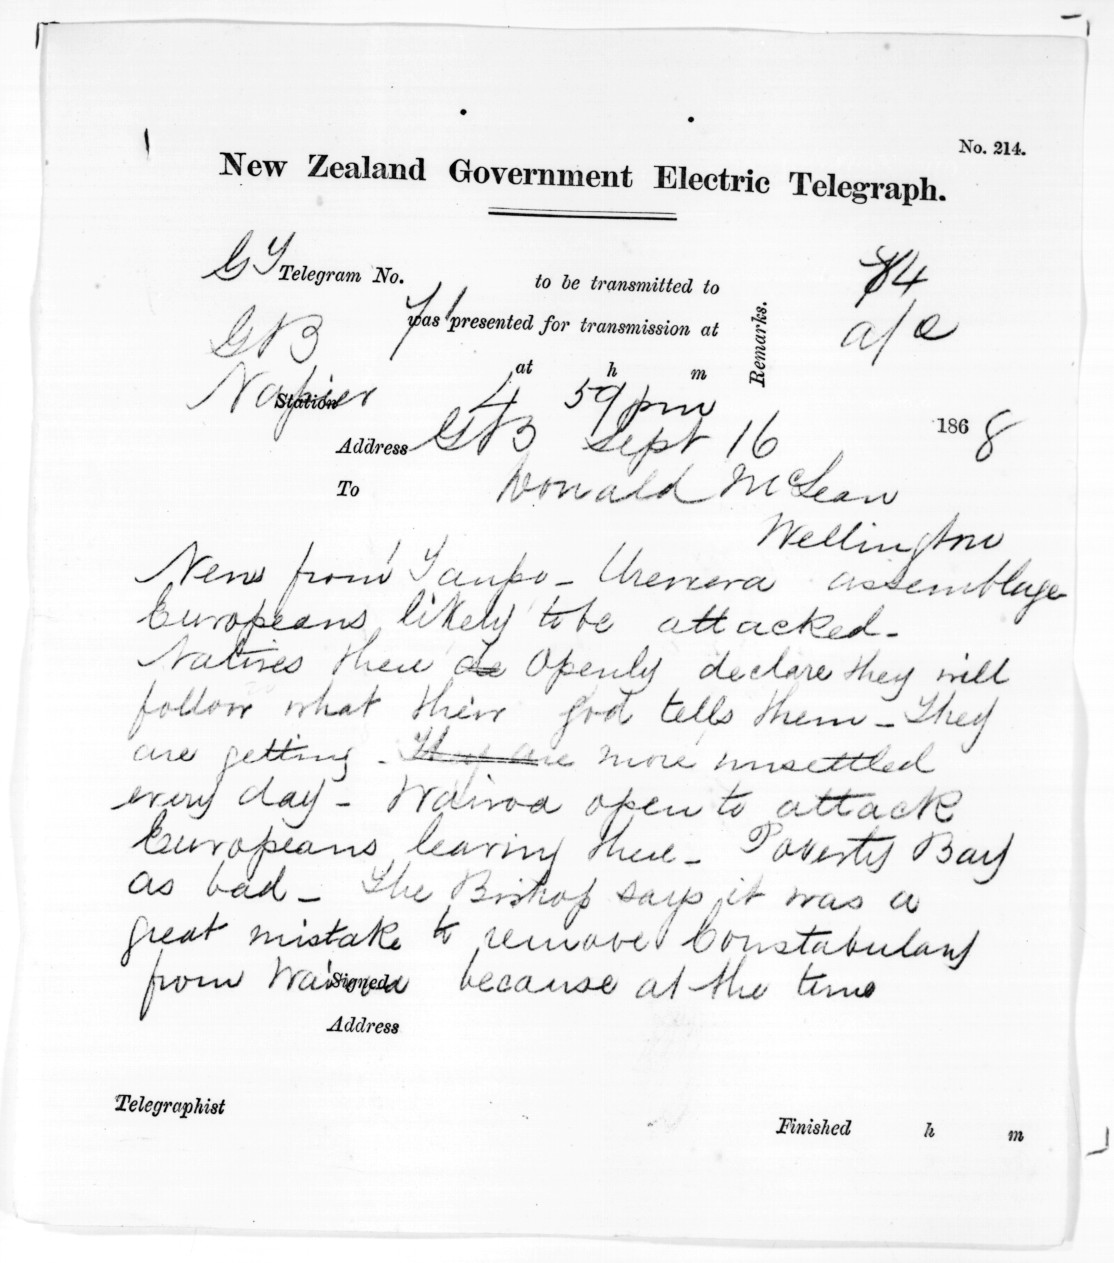 No. 214.
New Zealand Government Electric Telegraph.
GY Telegram No. to be transmitted to 74
GNB was presented for transmission at Remarks. a/c
at h m
Napier Station 4 59 pm
Address GNB Sept 16 1868
To Donald McLean
Wellington
News from Taupo - Urewera assemblage
Europeans likely to be attacked -
Natives there de Openly declare they will
follow what their god tells them - They
are getting - They are more unsettled
every day - Wairoa open to attack
Europeans leaving there - Poverty Bay
as bad - The Bishop says it was a
great mistake to remove Constabulary
from Wairoa because at the time
Signed
Address
Telegraphist
Finished h m